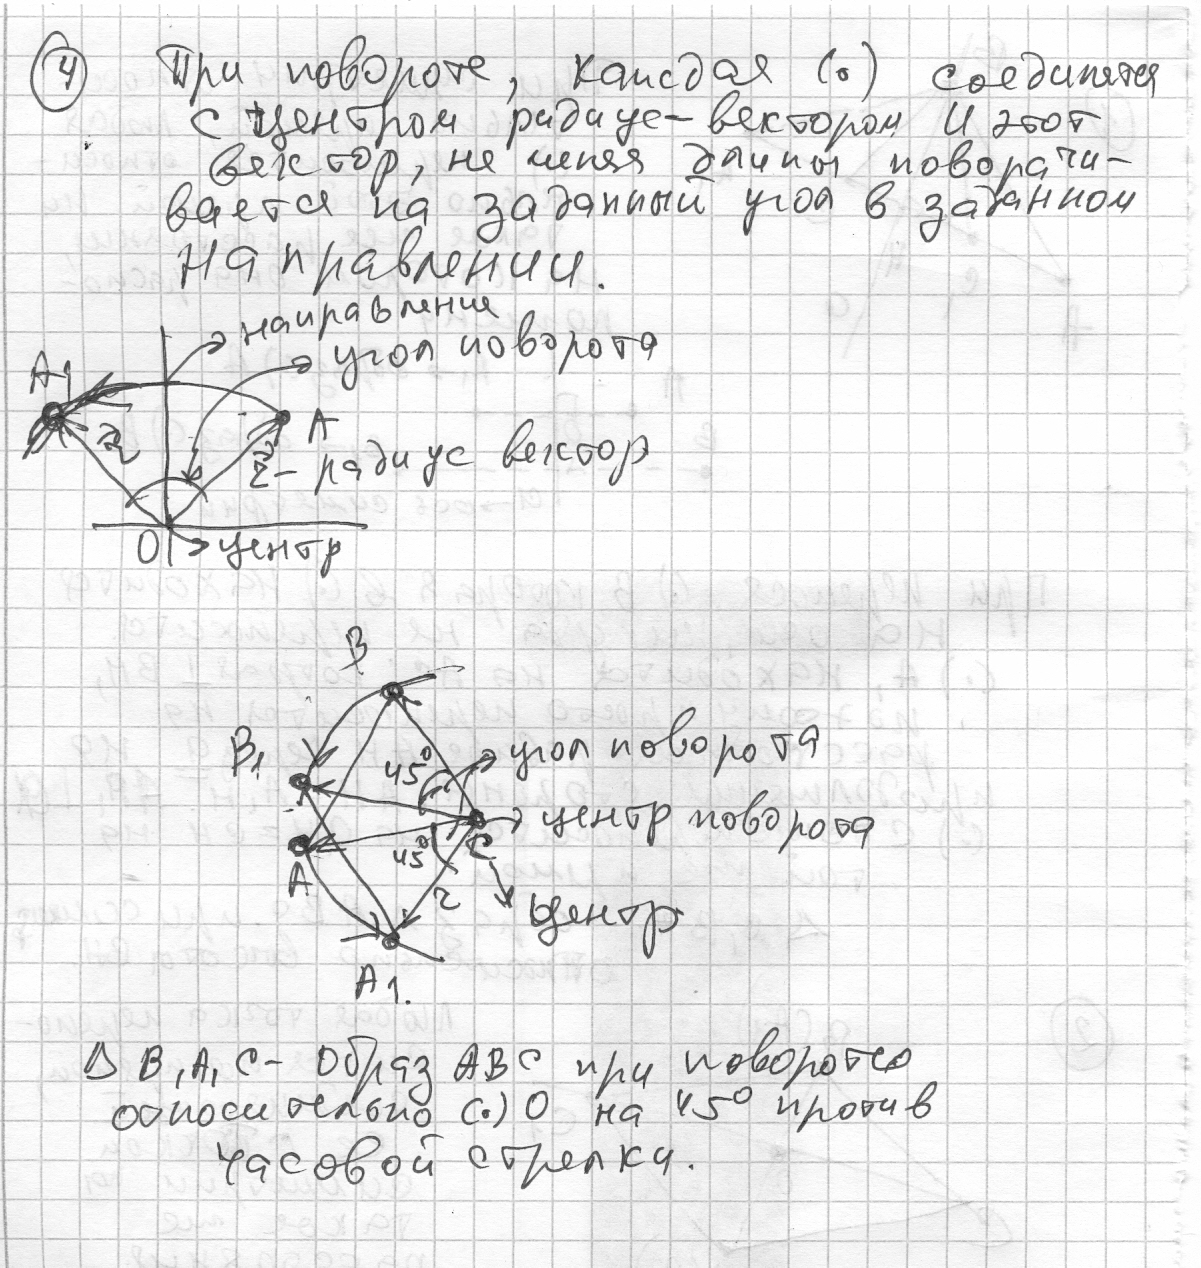 4 При повороте, каждая (•) соединятся
с центром радиус-вектором И этот
вектор, не меняя длины поворачи-
вается на заданный угол в заданном
направлении.
направление
угол поворота
A1
A
r
r - радиус вектор
O
центр
B
B1
45°
угол поворота
центр поворота
45°
C
A
r
центр
A1.
Δ B1A1C - Образ ABC при повороте
относительно (•) O на 45° против
часовой стрелки.